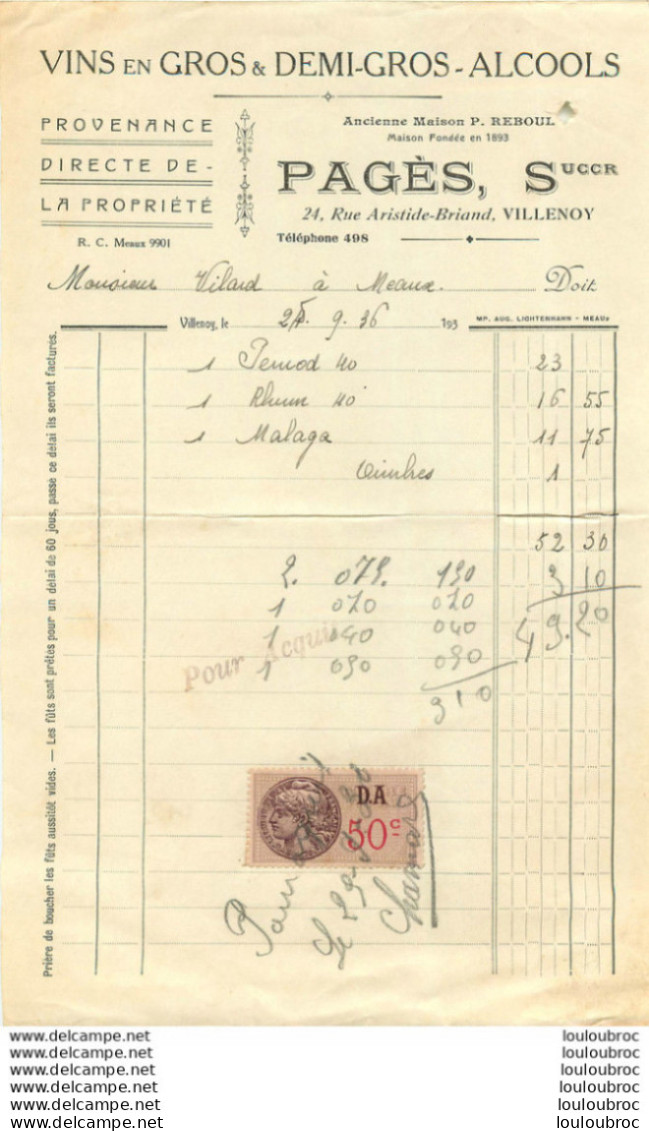 VINS EN GROS & DEMI-GROS - ALCOOLS
PROVENANCE
DIRECTE DE -
LA PROPRIÉTÉ
R. C. Meaux 9901
Ancienne Maison P. REBOUL
Maison Fondée en 1893
PAGÈS, SUCCR
24, Rue Aristide-Briand, VILLENOY
Téléphone 498
Monsieur Vilard à Meaux. Doit
Villenoy, le 25. 9. 36 193
IMP. AUG. LICHTENHANN - MEAUX
1 Pernod 40 23
1 Rhum 40° 16 55
1 Malaga 11 75
timbres 1
52 30
2. 075. 150 3 10
1 070 070 49.20
1 040 040
1 050 050
310
Pour Acquit
DA
50 c
Pour acquit
Le 25-9-36
Prière de boucher les fûts aussitôt vides. — Les fûts sont prêtés pour un délai de 60 jous, passé ce délai ils seront facturés.
www.delcampe.net louloubroc
www.delcampe.net louloubroc
www.delcampe.net louloubroc
www.delcampe.net louloubroc
www.delcampe.net louloubroc
www.delcampe.net louloubroc